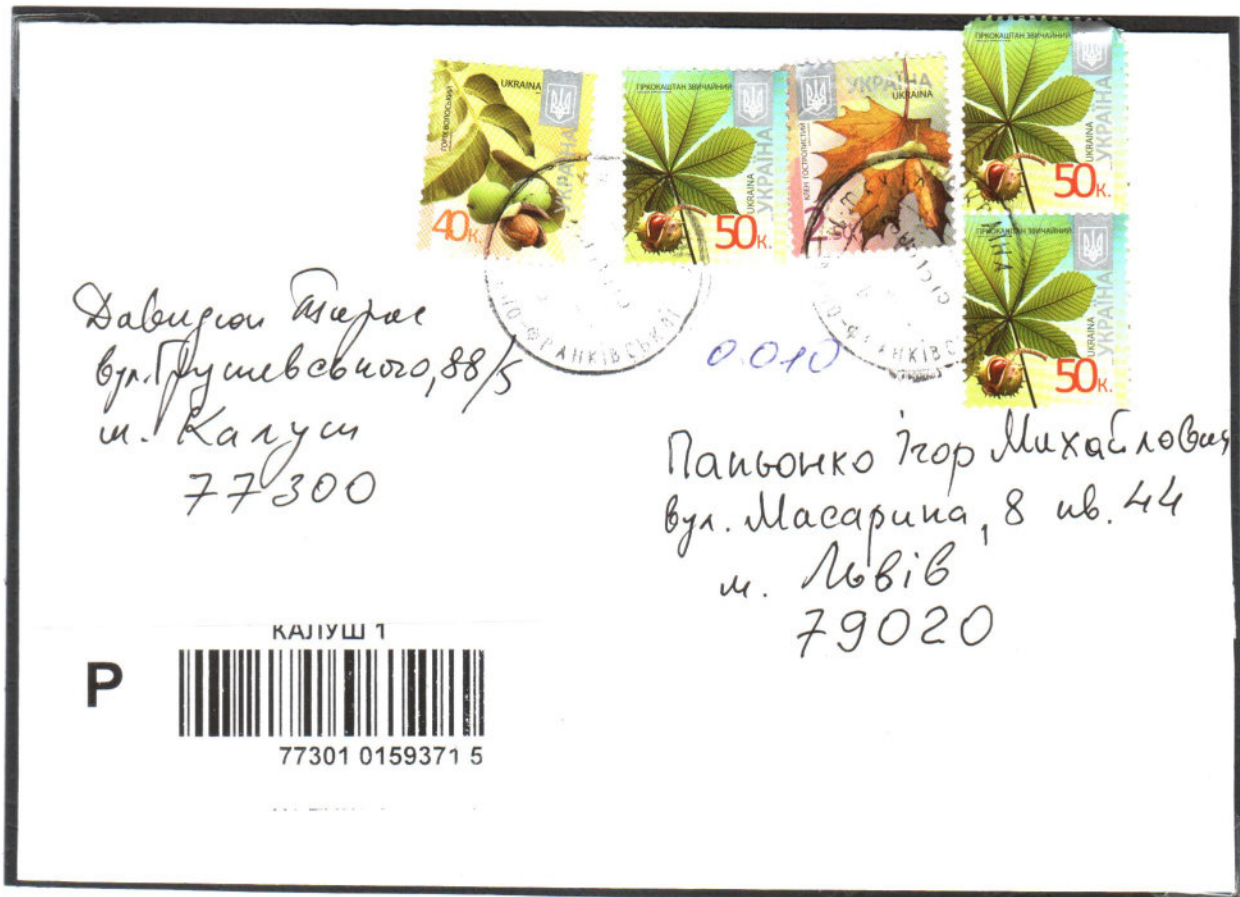 ГОРІХ ВОЛОСЬКИЙ
UKRAINA
УКРАЇНА
40к.
ГІРКОКАШТАН ЗВИЧАЙНИЙ
UKRAINA
УКРАЇНА
50к.
КЛЕН ГОСТРОЛИСТИЙ
УКРАЇНА
UKRAINA
ГІРКОКАШТАН ЗВИЧАЙНИЙ
UKRAINA
УКРАЇНА
50к.
ГІРКОКАШТАН ЗВИЧАЙНИЙ
UKRAINA
УКРАЇНА
50к.
НО-ФРАНКІВСЬК
0.010
Давидюк Тарас
вул. Грушевського, 88/5
м. Калуш
77300
Папьонко Ігор Михайлович
вул. Масарика, 8 кв. 44
м. Львів
79020
КАЛУШ 1
Р
77301 0159371 5